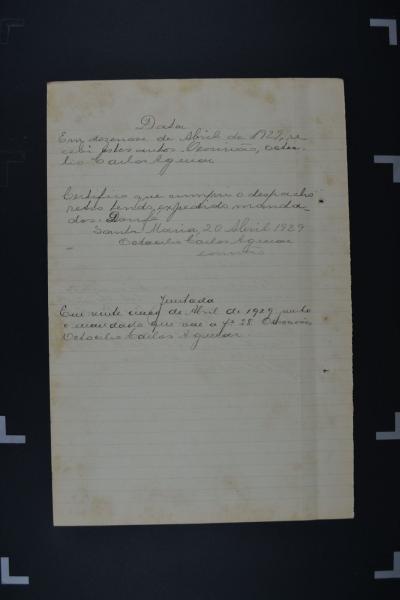 Data
Em dezenove de Abril de 1929, re-
cebi estes autos. O escrivão, Octa-
cilio Carlos Aguiar
Certifico que cumpri o despacho
retro tendo, expedido manda-
dos. Dou fé.
Santa Maria, 20 Abril 1929
Octacilio Carlos Aguiar
escrivão
Juntada
Em vinte cinco de Abril de 1929 junto
o mandado que vae a fs 28. O escrivão
Octacilio Carlos Aguiar.